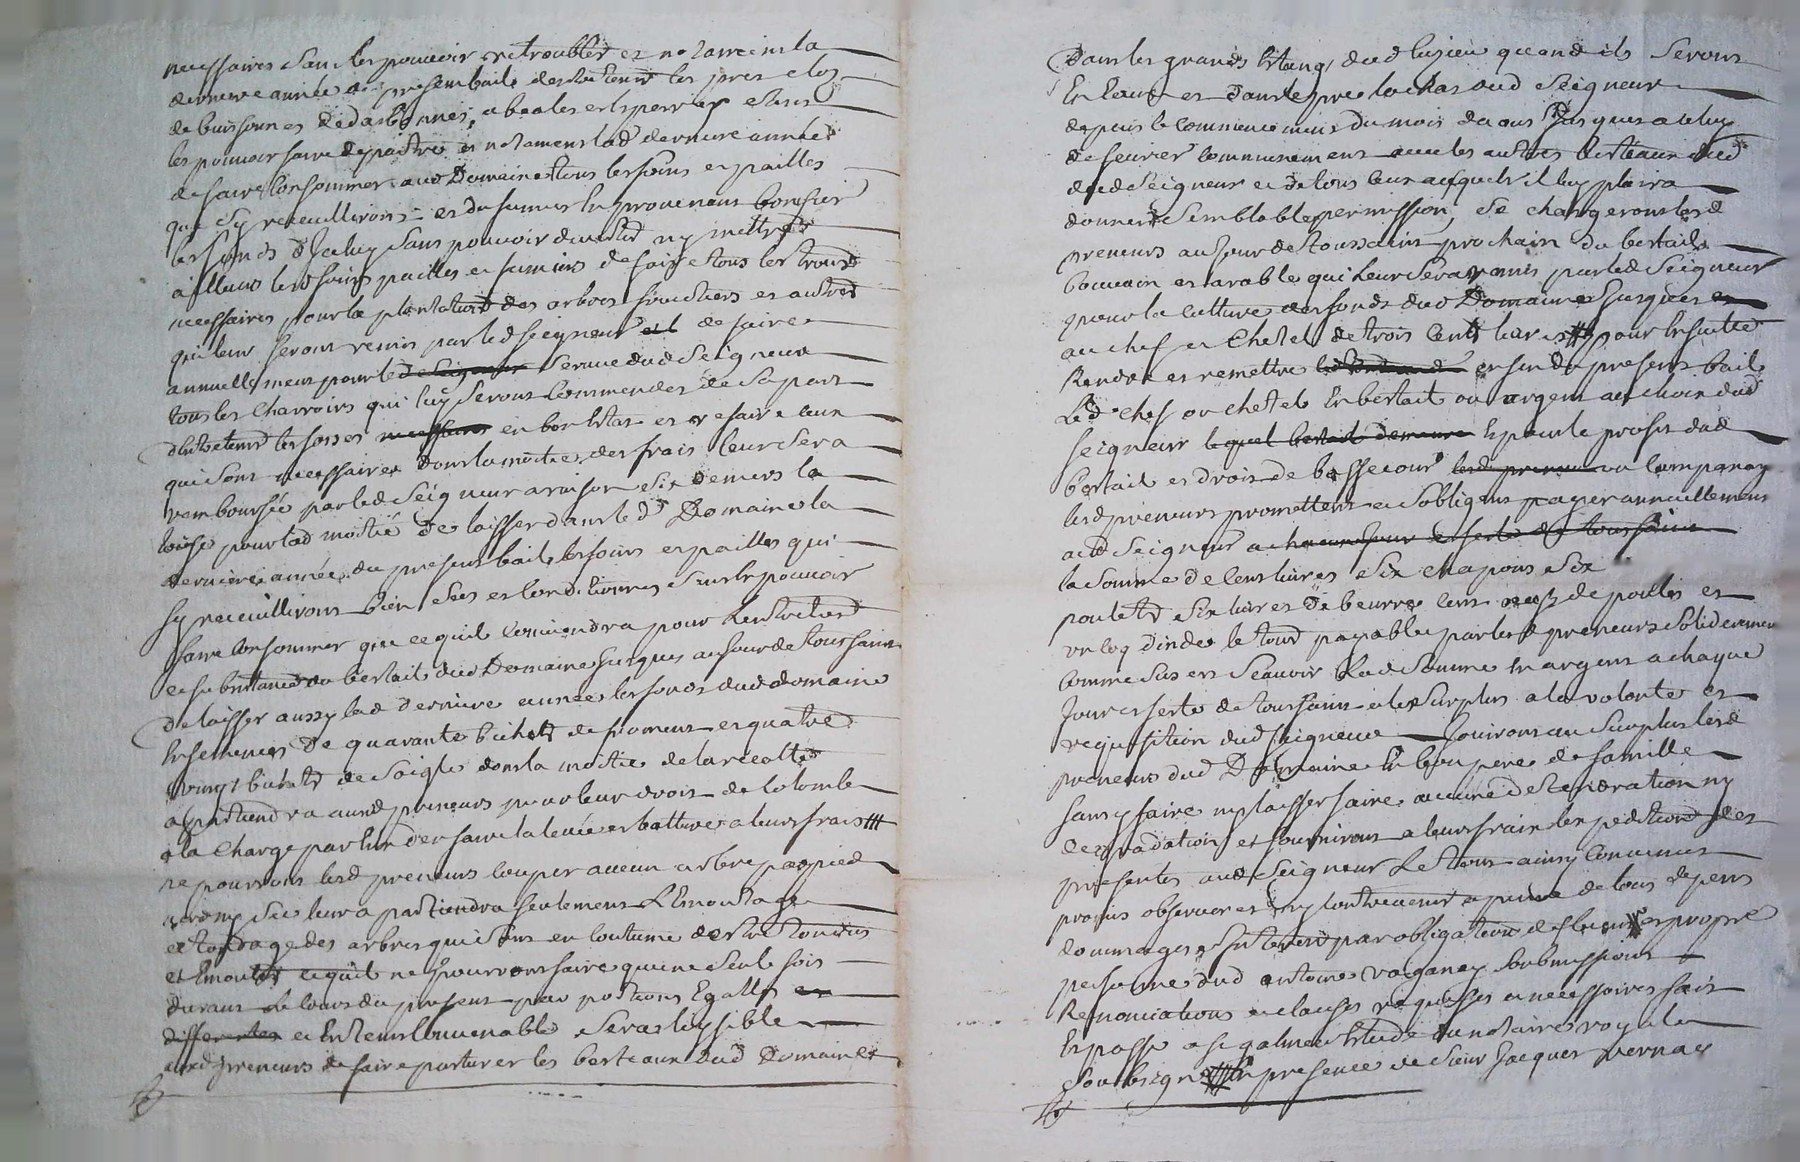 necessaires sans les pouvoir retroubler et notamment la
derniere année du present bail des lutenir les pres clos
de buissonnes et sans
les pouvoir faire depaistre et notament lad derniere année
de faire consommer aud Domaine tous les foins et pailles
que sy receuilliront et du fumier en provenant bonifier
les fonds d'Iceluy sans pouvoir divertir ny mettre
ailleurs lesd foins pailles et fumiers de faire tous les
necessaires pour la plantation des arbres fruitiers et autres
qui leur seront remis par led seigneur de faire
annuellement pour le service dud Seigneur
tous les charrois qui luy seront commendes de sa part
d'entretenir les fosses en bon estat et refaire ceux
qui sont necessaires dont la moitié des frais leur sera
remboursée par led Seigneur a raison six deniers la
toise pour lad moitié de laisser dans led Domaine la
derniere année du present bail les foins et pailles qui
sy receuilliront bien secs et conditionnes sans en pouvoir
faire consommer que ce quil conviendra pour lentretien
et substance du bestail dud Domaine jusques au jour de toussaint
de laisser aussy lad derniere année les fonds dud domaine
ensemences de quarante bichets de froment et quatre
vingt bichets de soigle dont la moitié de la recolte
apartiendra auxd preneurs pour leur droit de colombe
a la charge par eux d'en faire la levée et batture a leurs frais
ne pourront lesd preneurs couper aucun arbre par pied
verd ny sec leur apartiendra seulement l'Emontage
et tondage des arbres qui sont en coutume destre tondus
et Emontés ce quils ne pourront faire qu'une seule fois
durant le cours du present par portions Egalles et
differentes et en tems convenable sera loysible
auxd preneurs de faire parturer les bestiaux dud Domaine
Dans les grands Etangs dud lusieu quand ils seront
En leau et dans le pre dud Seigneur
depuis le commencement du mois daous Jusques a celuy
de feurier communement avec les autres bestiaux dud
dud Seigneur et de tous ceux ausquels il luy plaira
donner semblable permission, se chargeront lesd
preneurs au Jour de toussaint prochain du bestail
bouvain et arable qui leur sera remis par led Seigneur
pour la culture des fonds dud Domaine Jusques
au chef et chetel de trois cents livres pour ensuitte
Rendre et remettre en fin du present bail
Led chef ou chetel En bestail ou argent au choix dud
Seigneur lequel bestail demeure Et pour le profit dud
bestail et droit de bassecour
lesd preneurs promettent et sobligent payer annuellement
aud Seigneur a chacun jour et feste de toussaint
la somme de cent livres six chapons six
poulets six livres de beurre cent œufs de poules et
un coq dinde le tout payable par lesd preneurs solidairement
comme sus est scauoir Lad somme en argent a chaque
Jour et feste de toussaint et le surplus a la volonté et
requisition dud seigneur Jouiront au surplus lesd
preneurs dud Domaine En bon pere de famille
sans y faire ny laisser faire aucune deterioration ny
degradation et fourniront a leurs frais lexpedition des
presentes aud Seigneur Le tout ainsy convenus
promis observer et ny contrevenir a peine de tous depens
dommages et Interest par obligation de biens et propre
personne dud antoine vaganay soubmissions
Renonciations et clauses requises et necessaires fait
Et passé a st galmier Estude du notaire royal
Soubsigné En presence de Sieur Jacques vernay